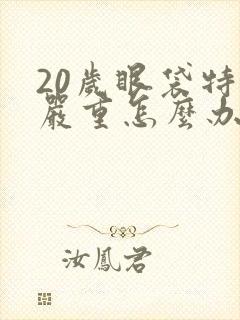 20歲眼袋特
嚴重怎麼办
汝鳳君